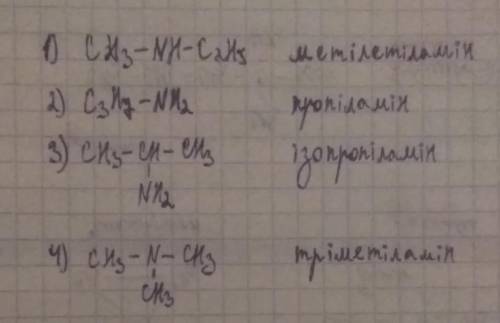 1) CH3-NH-C2H5 метілетіламін
2) C3H7-NH2 пропіламін
3) CH3-CH-CH3 ізопропіламін
NH2
4) CH3-N-CH3 тріметіламін
CH3